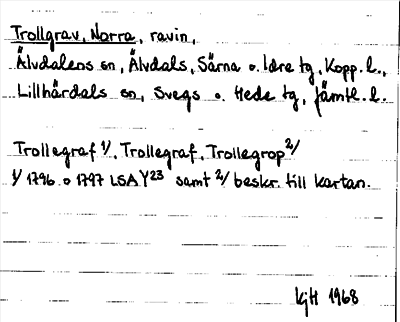 Trollgrav, Norra, ravin,
Älvdalens sn, Älvdals, Särna o. Idre tg, Kopp. l.,
Lillhärdals sn, Svegs o. Hede tg, Jämtl. l.
Trollegraf 1/, Trollegraf, Trollegrop 2/
1/ 1796 o 1797 LSA Y23 samt 2/ beskr. till kartan.
IgH 1968